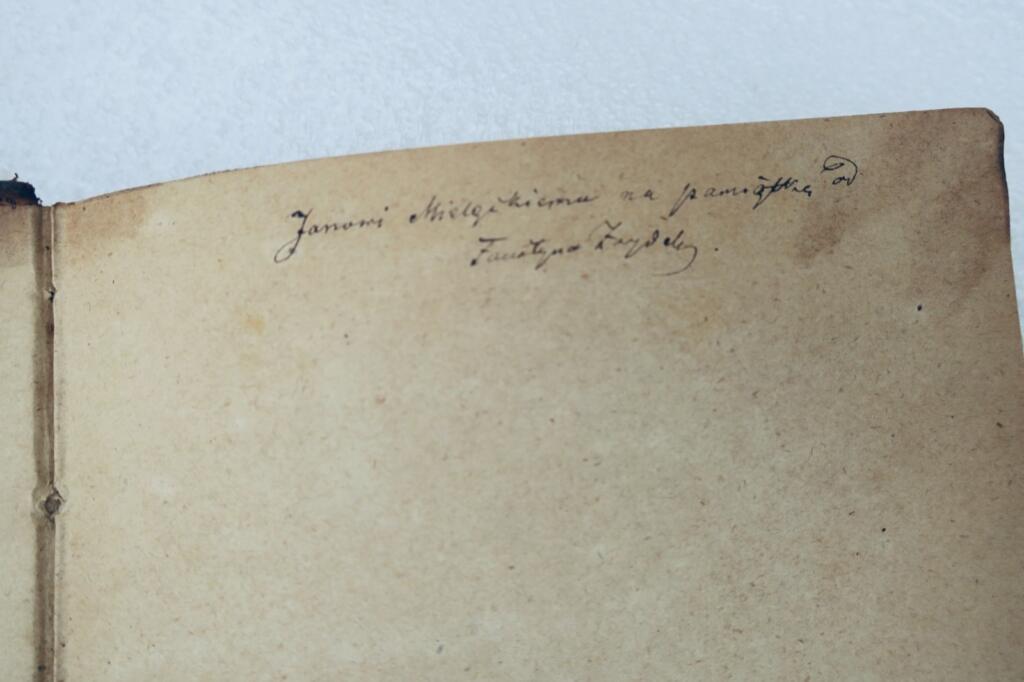 Janowi Mielęckiemu na pamiątkę od
Faustyna